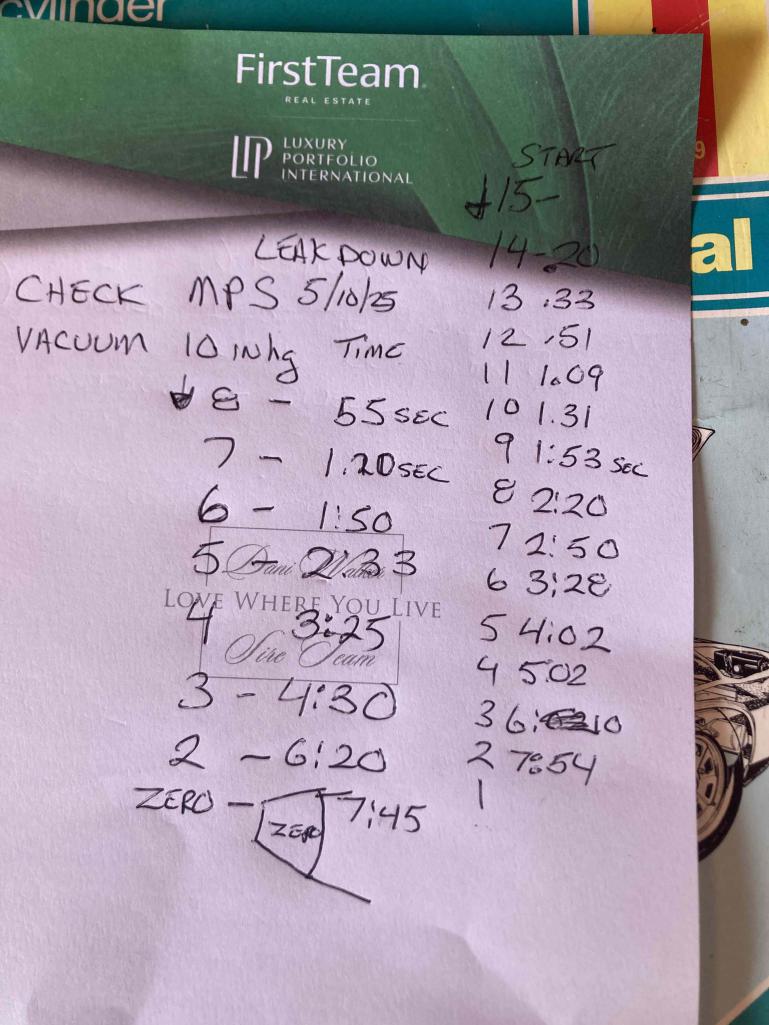 cylinder
FirstTeam
REAL ESTATE
LUXURY
PORTFOLIO
INTERNATIONAL
9
al
LEAKDOWN
CHECK MPS 5/10/25
VACUUM 10 inhg TIME
↓ 8 - 55 SEC
7 - 1.20 SEC
6 - 1:50
5 - 2:33
4 3:25
3 - 4:30
2 - 6:20
ZERO - 7:45
ZERO
LOVE WHERE YOU LIVE
Dani
Sire Team
START
↓15-
14-.20
13 .33
12 .51
11 1.09
10 1.31
9 1:53 SEC
8 2:20
7 2:50
6 3:28
5 4:02
4 5:02
3 6:10
2 7:54
1